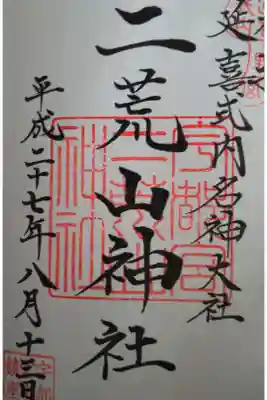 延喜式内名神大社
二荒山神社
平成二十七年八月十三日